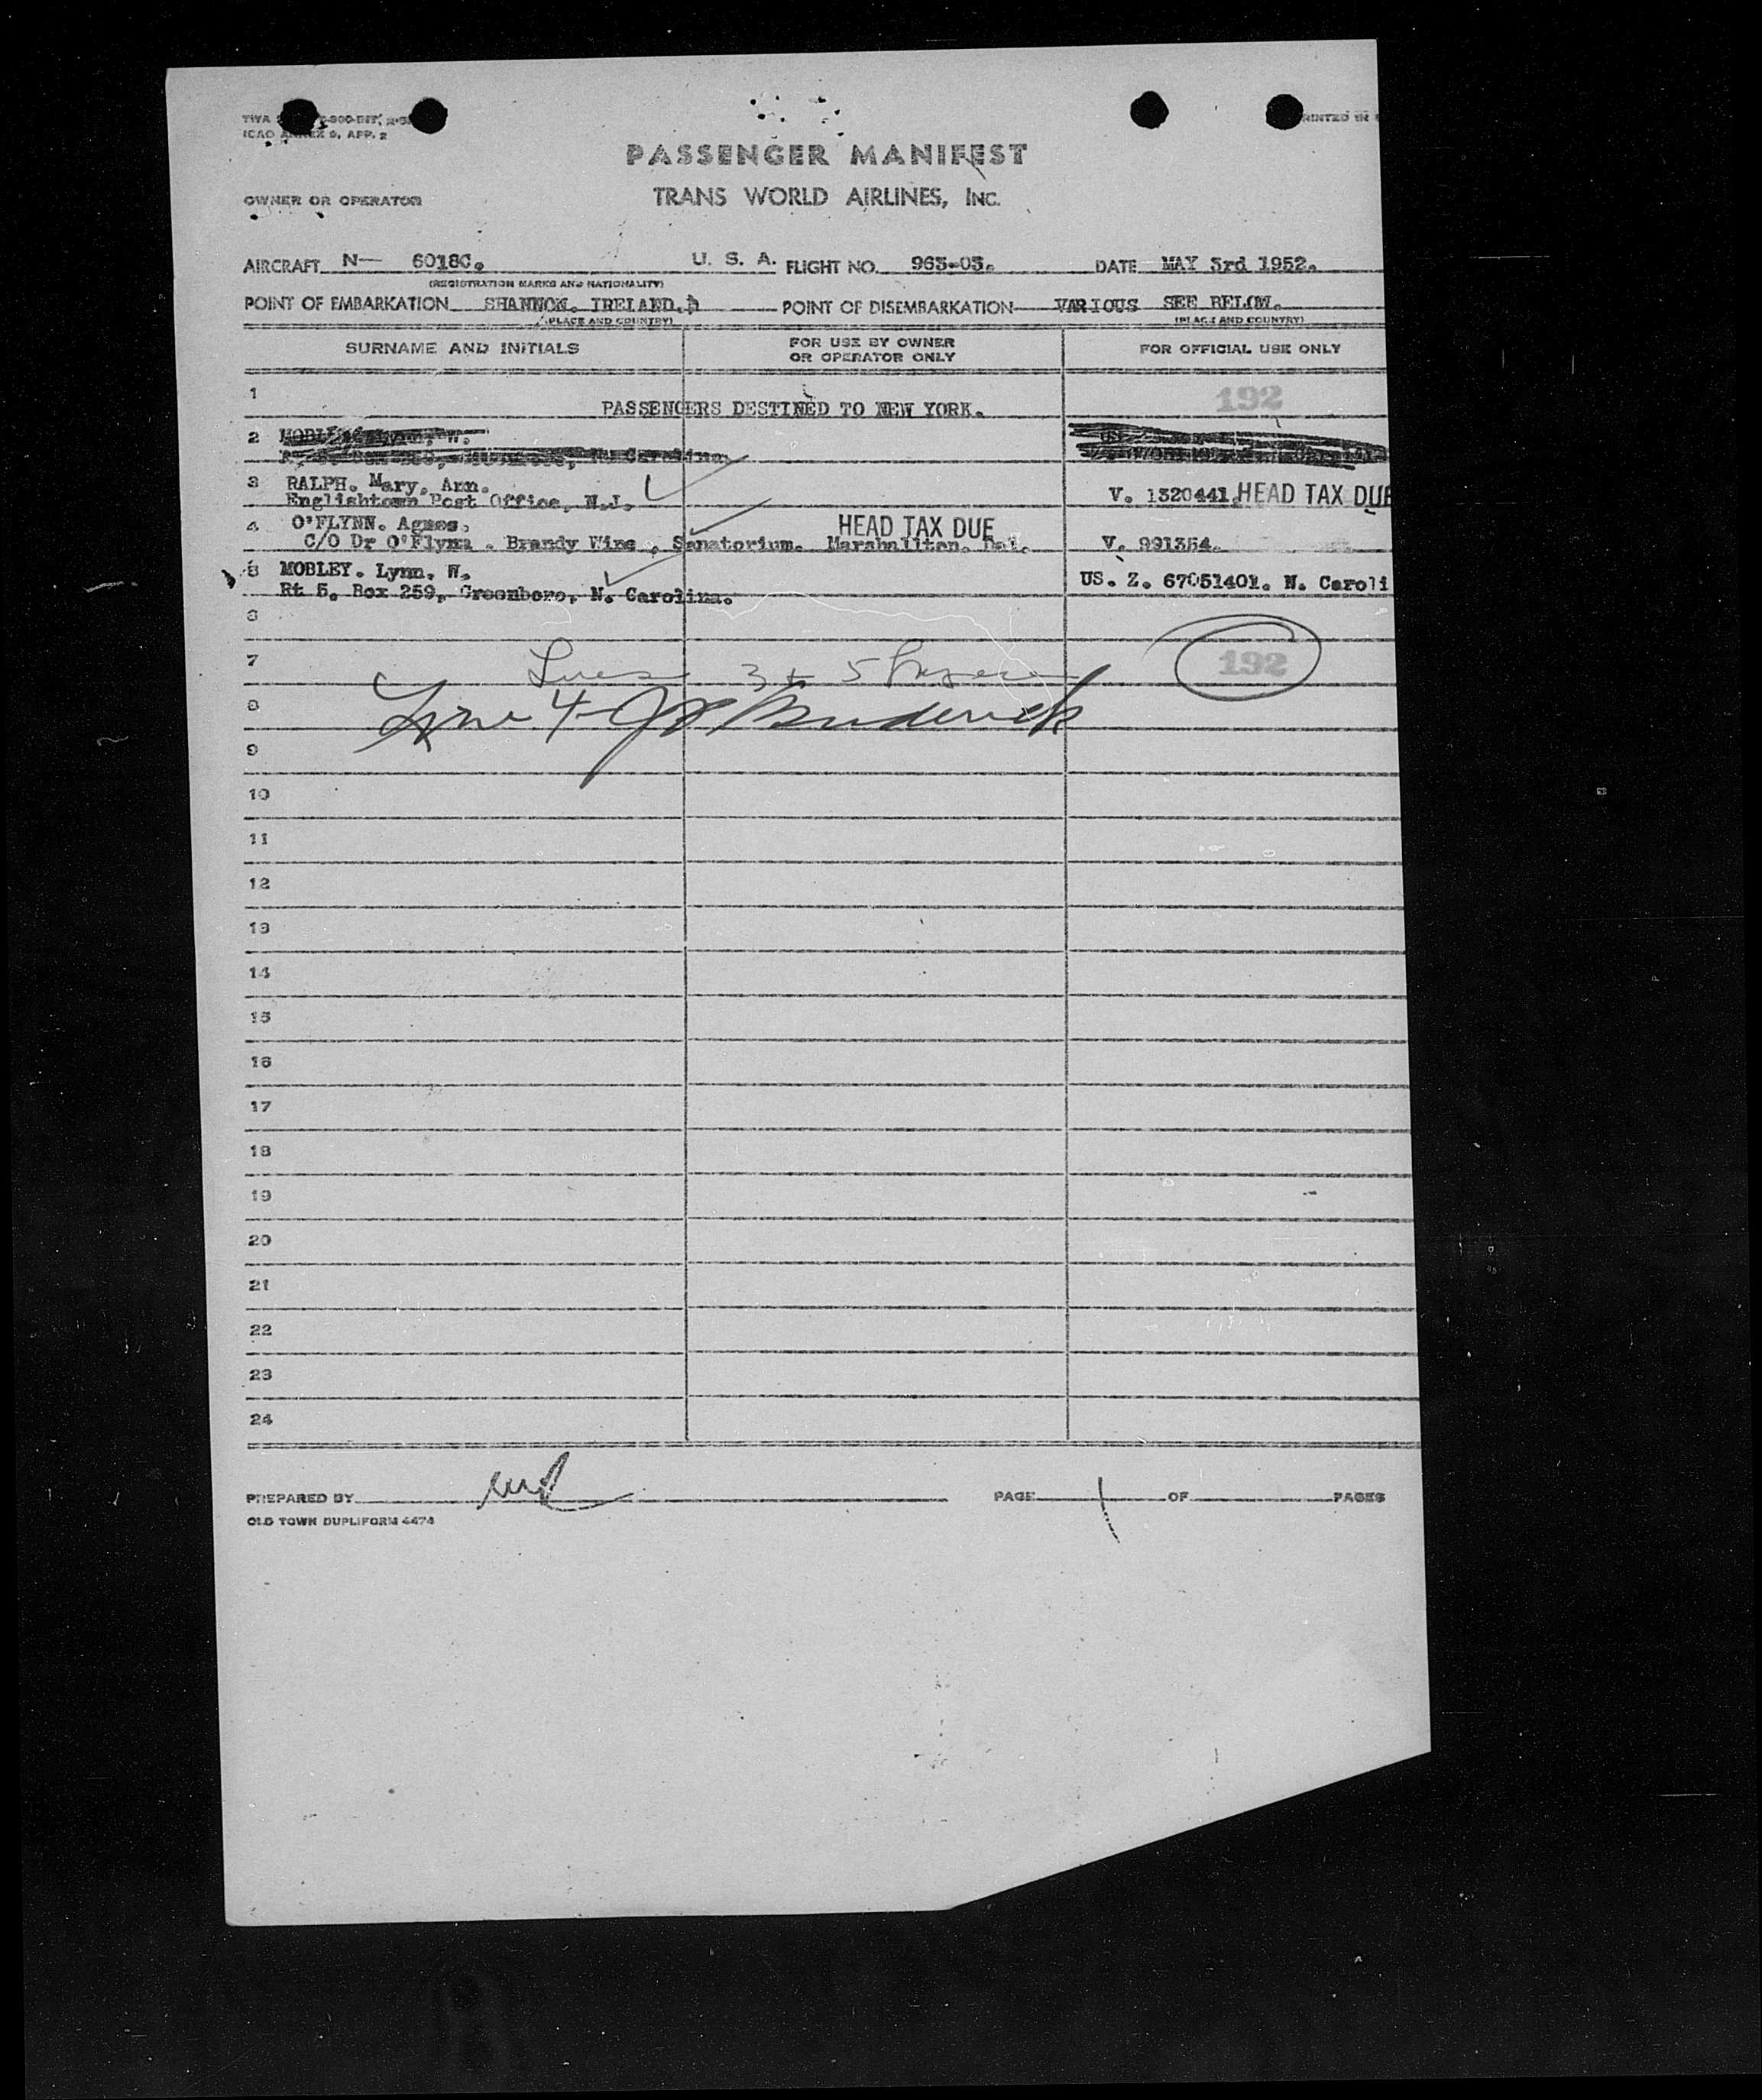 TWA
ICAO ANNEX 9, APP. 2
PRINTED IN
PASSENGER MANIFEST
TRANS WORLD AIRLINES, INC.
OWNER OR OPERATOR
AIRCRAFT N— 6018C. U. S. A. FLIGHT NO. 963-03. DATE MAY 3rd 1952.
(REGISTRATION MARKS AND NATIONALITY)
POINT OF EMBARKATION SHANNON. IRELAND. POINT OF DISEMBARKATION VARIOUS SEE BELOW.
(PLACE AND COUNTRY) (PLACE AND COUNTRY)
SURNAME AND INITIALS FOR USE BY OWNER OR OPERATOR ONLY FOR OFFICIAL USE ONLY
1 192
PASSENGERS DESTINED TO NEW YORK.
2 MOBLEY. Lynn, W.
N. Carolina.
3 RALPH. Mary, Ann.
Englishtown Post Office, N.J. V. 1320441. HEAD TAX DUE
4 O'FLYNN. Agnes. HEAD TAX DUE
C/O Dr O'Flynn . Brandy Wine , Sanatorium. Marshallton. Del. V. 991354.
5 MOBLEY. Lynn, W. US. Z. 67051401. N. Caroli
Rt 5, Box 259, Greenboro, N. Carolina.
6
7 Lines 3 + 5 192
8 Line 4 - Broderick
9
10
11
12
13
14
15
16
17
18
19
20
21
22
23
24
PREPARED BY PAGE 1 OF PAGES
OLD TOWN DUPLIFORM 4474